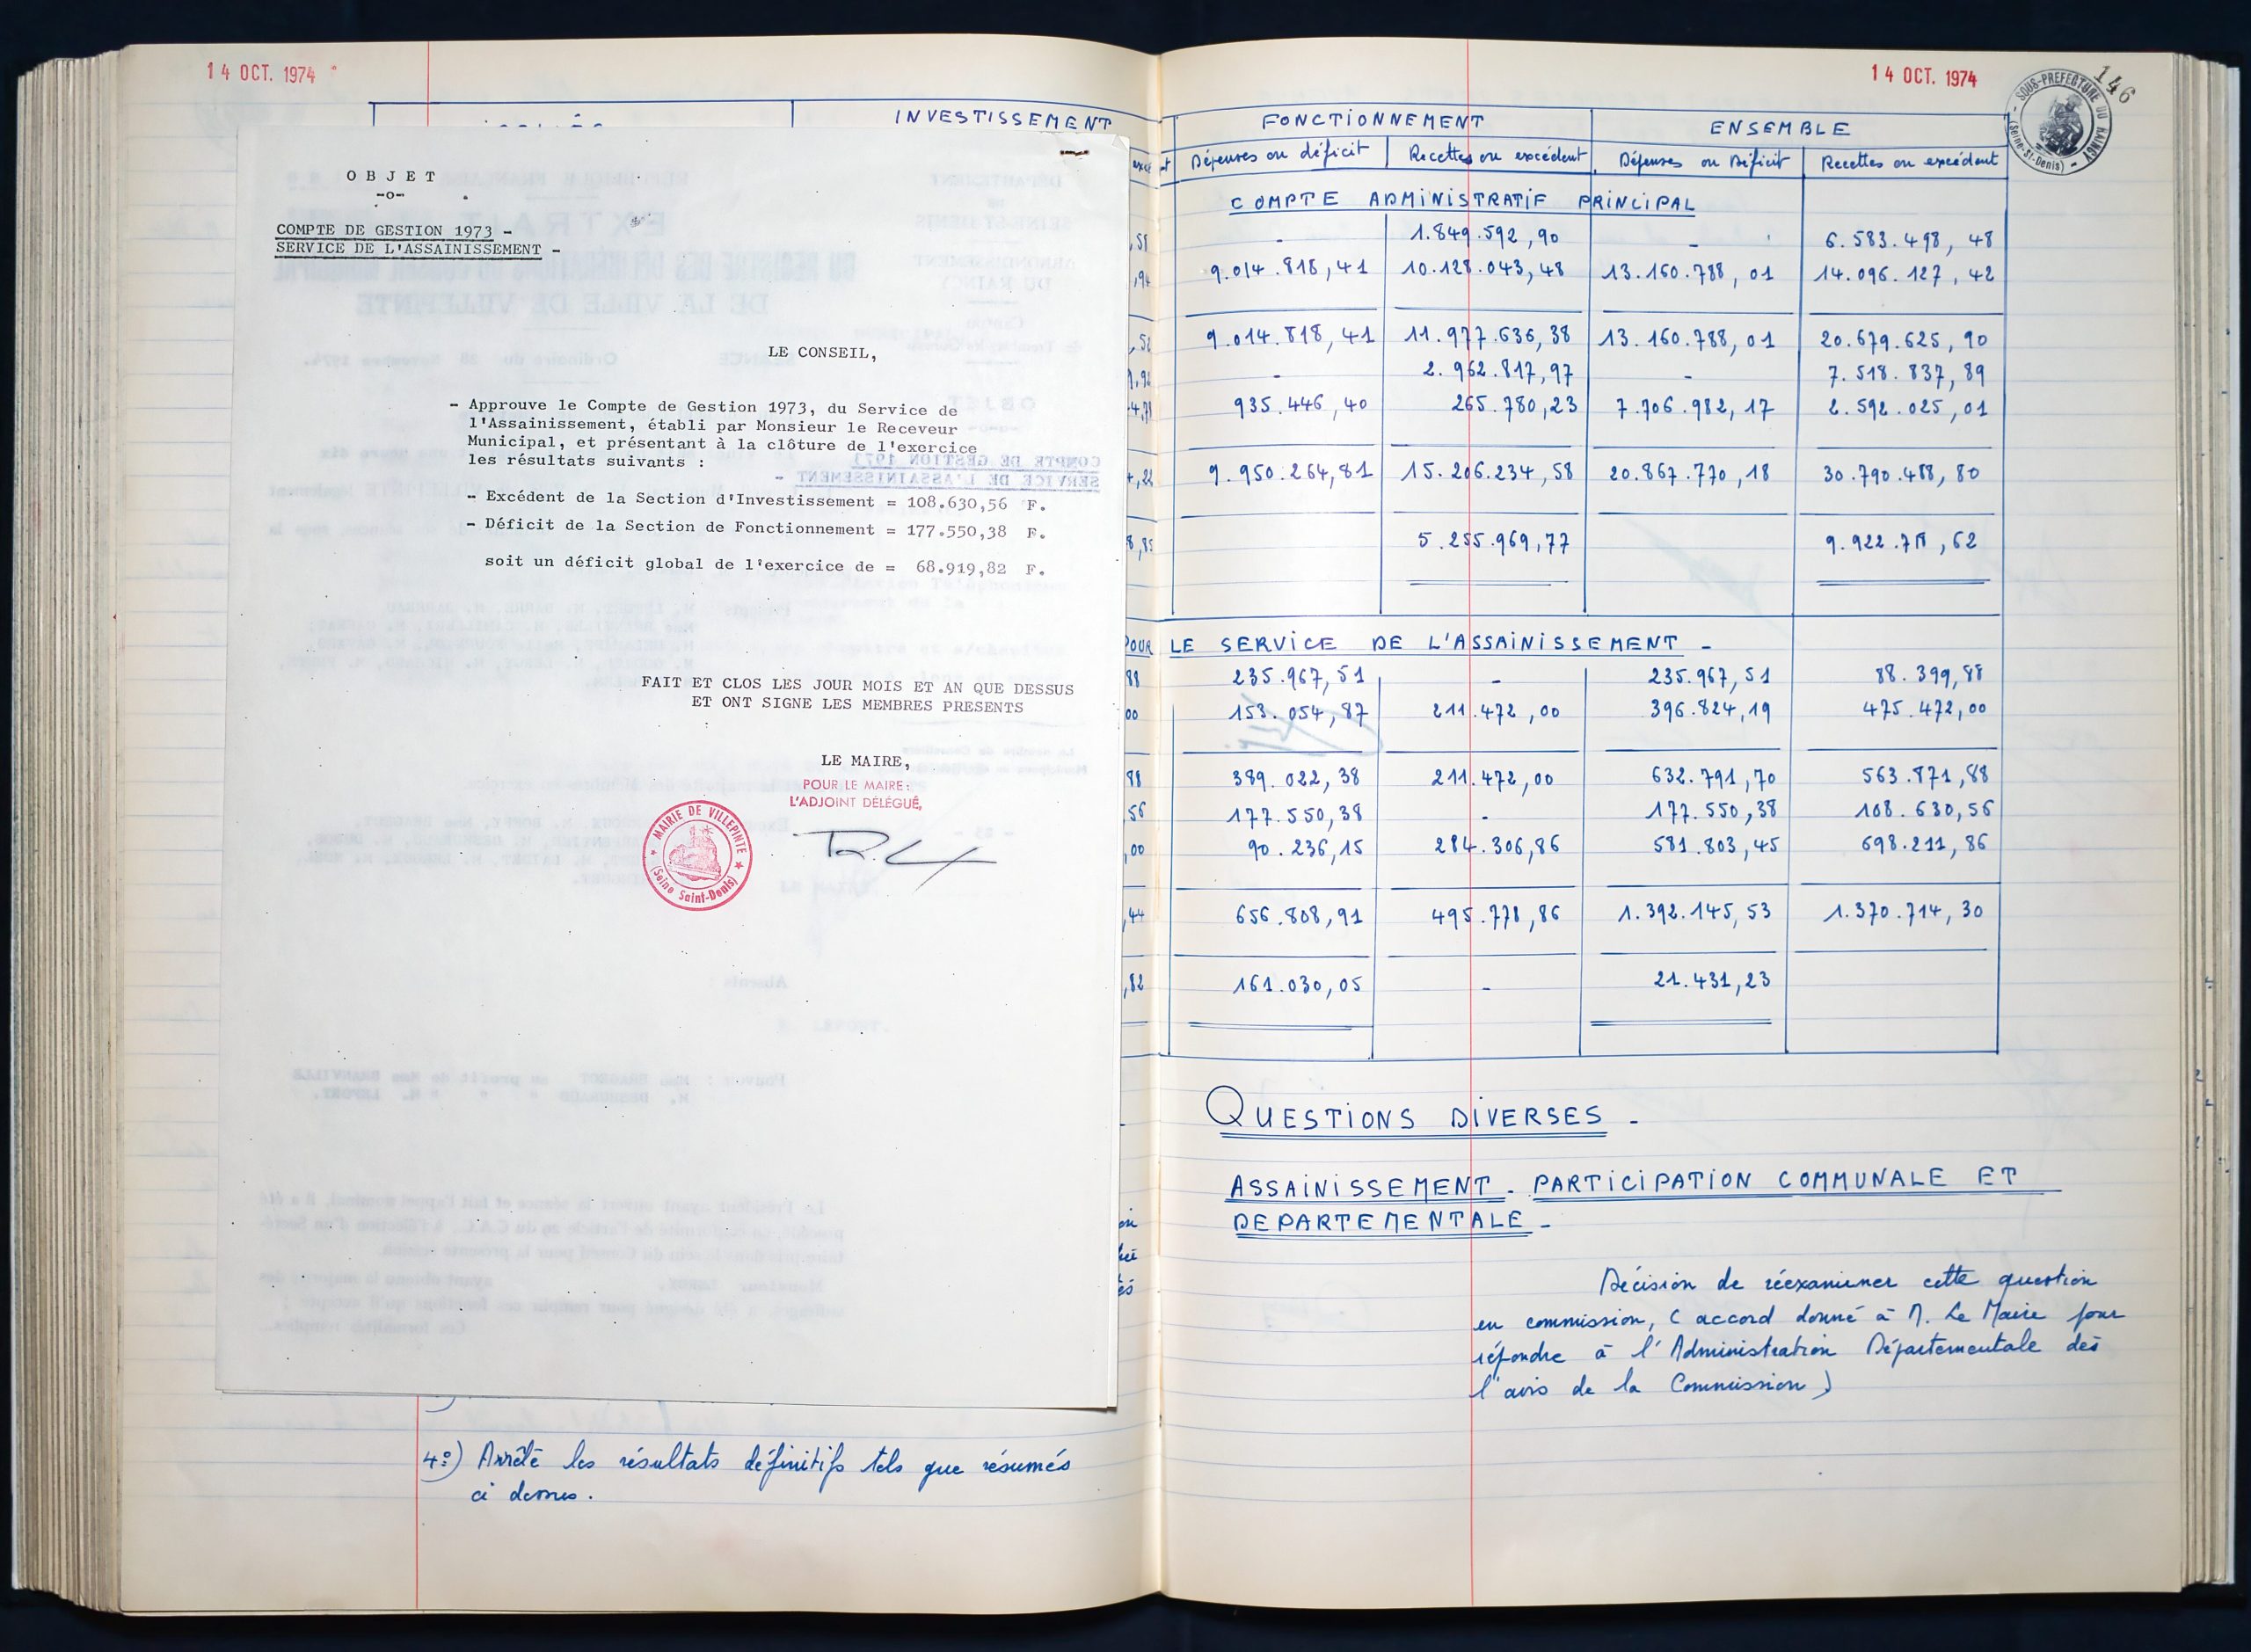 14 OCT. 1974
INVESTISSEMENT
OBJET
-o-
COMPTE DE GESTION 1973 -
SERVICE DE L'ASSAINISSEMENT -
LE CONSEIL,
- Approuve le Compte de Gestion 1973, du Service de
l'Assainissement, établi par Monsieur le Receveur
Municipal, et présentant à la clôture de l'exercice
les résultats suivants :
- Excédent de la Section d'Investissement = 108.630,56 F.
- Déficit de la Section de Fonctionnement = 177.550,38 F.
soit un déficit global de l'exercice de = 68.919,82 F.
FAIT ET CLOS LES JOUR MOIS ET AN QUE DESSUS
ET ONT SIGNE LES MEMBRES PRESENTS
LE MAIRE,
POUR LE MAIRE:
L'ADJOINT DÉLÉGUÉ,
MAIRIE DE VILLEPINTE
(Seine Saint-Denis)
4º) Arrêté les résultats définitifs tels que résumés
ci dessus.
14 OCT. 1974
146
SOUS-PREFECTURE DU RAINCY
(Seine-St-Denis)
FONCTIONNEMENT ENSEMBLE
Dépenses ou déficit Recettes ou excédent Dépenses ou Déficit Recettes ou excédent
COMPTE ADMINISTRATIF PRINCIPAL
- 1.849.592,90 - 6.583.498,48
9.014.818,41 10.128.043,48 13.160.788,01 14.096.127,42
9.014.818,41 11.977.636,38 13.160.788,01 20.679.625,90
- 2.962.817,97 - 7.518.837,89
935.446,40 265.780,23 7.706.982,17 2.592.025,01
9.950.264,81 15.206.234,58 20.867.770,18 30.790.488,80
5.255.969,77 9.922.718,62
POUR LE SERVICE DE L'ASSAINISSEMENT -
235.967,51 - 235.967,51 88.399,88
153.054,87 211.472,00 396.824,19 475.472,00
389.022,38 211.472,00 632.791,70 563.871,88
177.550,38 - 177.550,38 108.630,56
90.236,15 284.306,86 581.803,45 698.211,86
656.808,91 495.778,86 1.392.145,53 1.370.714,30
161.030,05 - 21.431,23
QUESTIONS DIVERSES -
ASSAINISSEMENT - PARTICIPATION COMMUNALE ET
DEPARTEMENTALE -
Décision de réexaminer cette question
en commission, (accord donné à M. Le Maire pour
répondre à l'Administration Départementale dès
l'avis de la Commission)